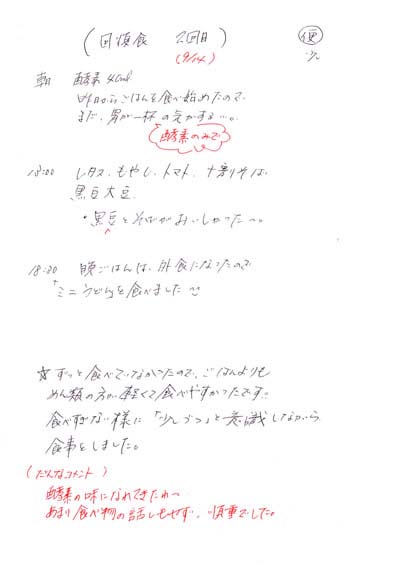 (回復食 2回目)
便
少
(9/14)
朝 酵素40ml
昨日からごはんを食べ始めたので、
まだ、胃が一杯の気がする…。
酵素のみで
13:00 レタス、もやし、トマト、十割りそば、
黒豆大豆、
・黒豆とそばがおいしかった〜。
18:30 晩ごはんは、外食になったので
ミニうどんを食べました
☆ずっと食べていなかったので、ごはんよりも
めん類の方が軽くて食べやすかったです。
食べすぎない様に「少しづつ」と意識しながら
食事をしました。
(だんなコメント)
酵素の味になれてきたわ〜
あまり食べ物の話しもせず、慎重でした。